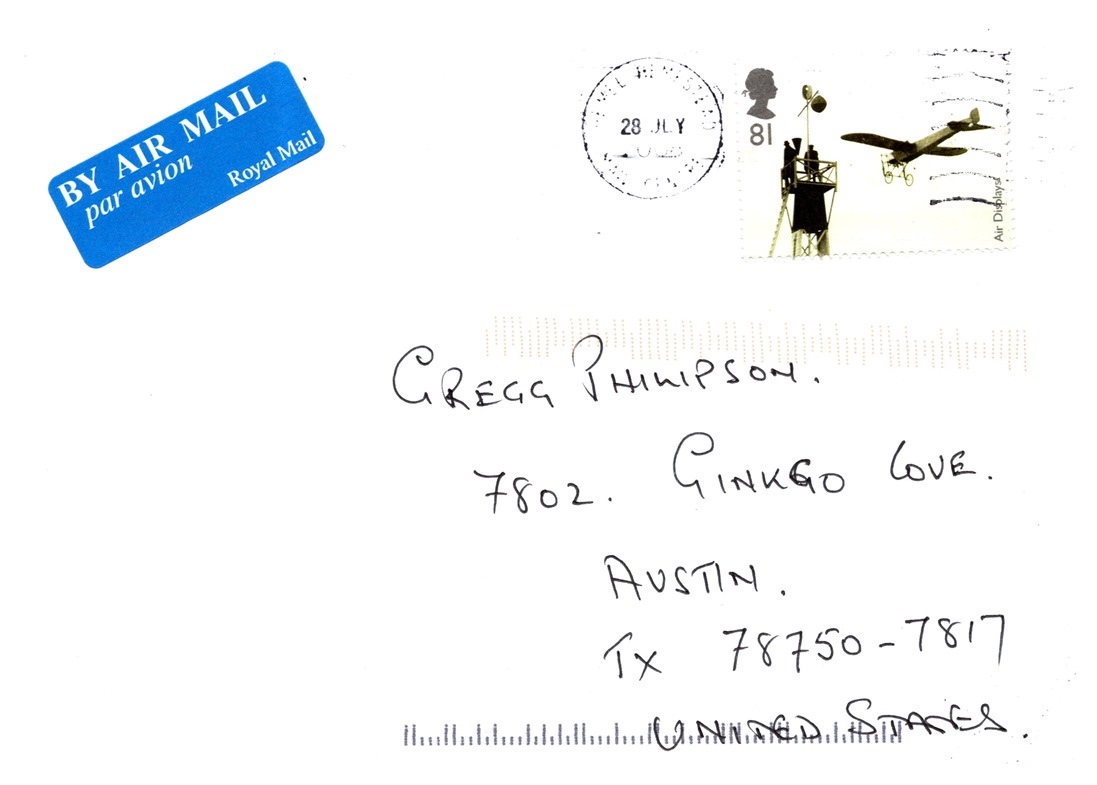 BY AIR MAIL
par avion
Royal Mail
HEMEL HEMPSTEAD
28 JLY
81
Air Displays
GREGG PHILIPSON.
7802. GINKGO COVE.
AUSTIN.
TX 78750-7817
UNITED STATES.